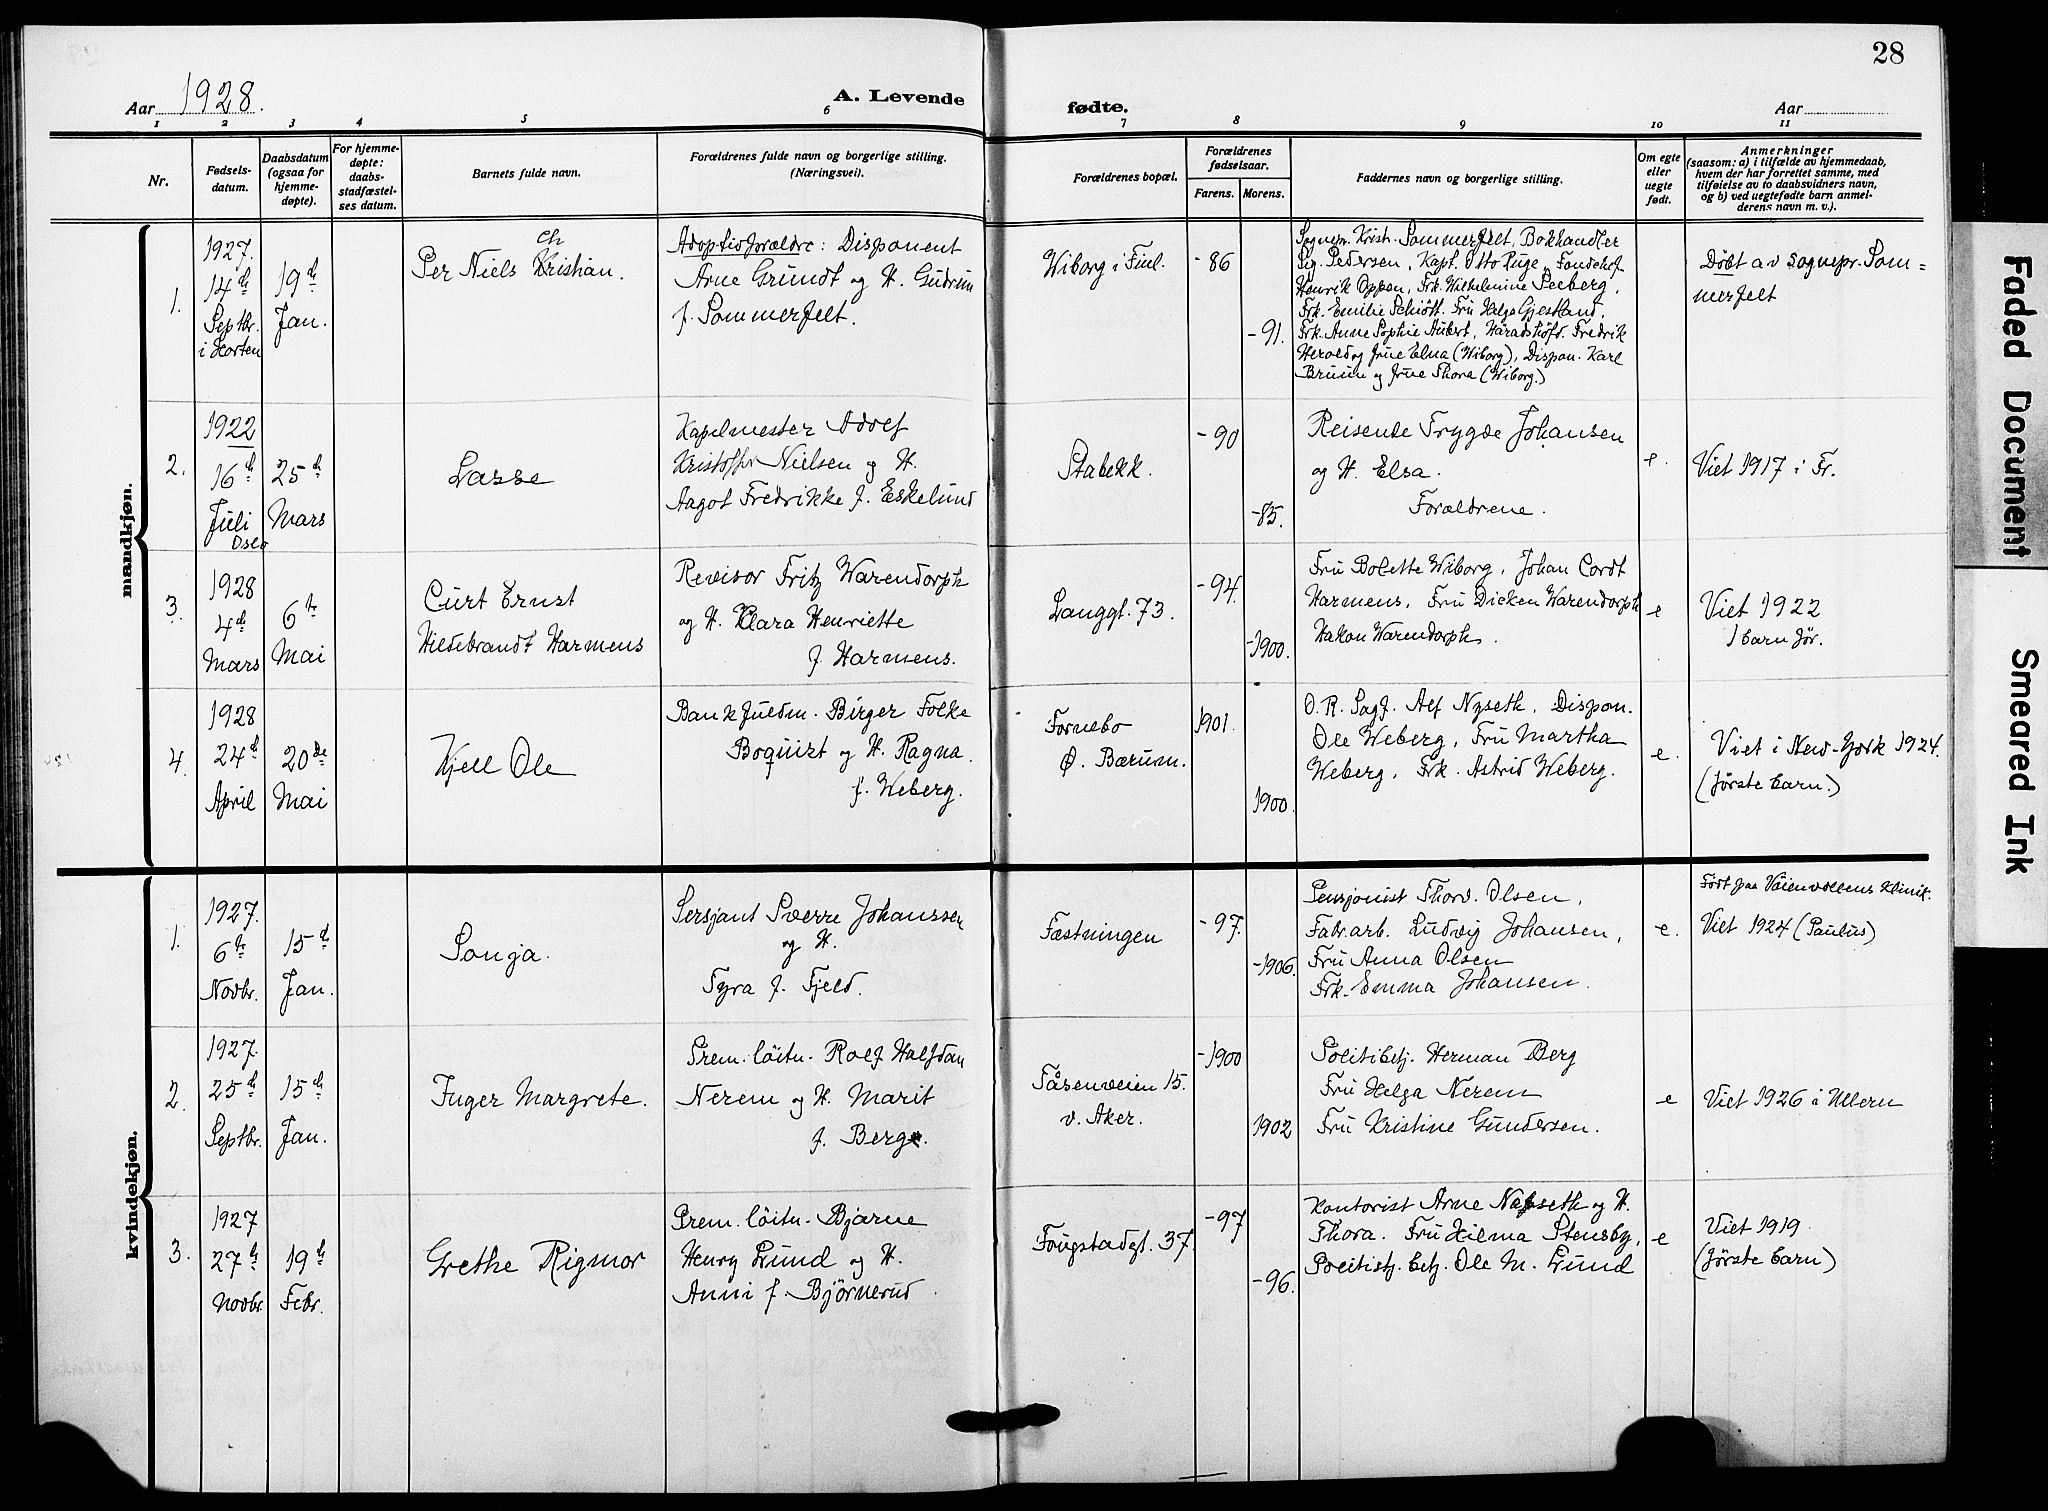 28
Aar 1928.
A. Levende
fødte.
Aar
1 2 3 4 5 6 7 8 9 10 11
Nr.
Fødsels-
datum.
Daabsdatum
(ogsaa for
hjemme-
døpte).
For hjemme-
døpte:
daabs-
stadfæstel-
ses datum.
Barnets fulde navn.
Forældrenes fulde navn og borgerlige stilling.
(Næringsvei).
Forældrenes bopæl.
Forældrenes
fødselsaar.
Farens. Morens.
Faddernes navn og borgerlige stilling.
Om egte
eller
uegte
født.
Anmerkninger
(saasom: a) i tilfælde av hjemmedaab,
hvem der har forrettet samme, med
tilføielse av to daabsvidners navn,
og b) ved uegtefødte barn anmel-
derens navn m. v.).
mandkjøn.
1.
1927.
14de
Septbr.
i Horten
19de
Jan.
Ch
Per Niels Kristian.
Adoptivforældre: Disponent
Arne Grundt og H. Gudrun
f. Sommerfelt.
Wiborg i Finl.
-86
-91.
Sognepr. Krist. Sommerfelt, Bokhandler
Sig. Pedersen, Kapt. Otto Ruge,
Henrik Oppen, Frk. Wilhelmine Seeberg,
Frk. Emilie Schiött. Fru Helga Gjestland,
Frk. Anne Sophie Aubert, Häradshöfd. Fredrik
Herold og frue Elna (Wiborg), Dispon. Karl
Bruun og frue Thora (Wiborg.)
Döbt av sognepr. Som=
merfelt
2.
1922
16de
Juli
Oslo
25de
Mars
Lasse
Kapelmester Adolf
Kristoffer Nielsen og H.
Aagot Fredrikke f. Eskelund
Stabekk.
-90
-85.
Reisende Trygve Johansen
og H. Elsa.
Forældrene.
e.
Viet 1917 i Fr.
3.
1928
4de
Mars
6te
Mai
Curt Ernst
Hildebrandt Harmens
Revisor Fritz Warendorph
og H. Klara Henriette
f. Harmens.
Langgt. 73.
-94.
-1900.
Fru Bolette Wiborg, Johan Cordt
Harmens, Fru Dicken Warendorph
Hakon Warendorph.
e
Viet 1922
1 barn för.
4.
1928
24de
April
20de
Mai
Kjell Ole
Bankfuldm. Birger Folke
Boquist og H. Ragna
f. Weberg.
Fornebo
Ø. Bærum.
1901.
1900.
O. R. Sagf. Alf Nyseth, Dispon.
Ole Weberg, Fru Martha
Weberg, Frk. Astrid Weberg.
e.
Viet i New-York 1924.
(förste barn.)
kvindekjøn.
1.
1927.
6te
Novbr.
15de
Jan.
Sonja.
Sersjant Sverre Johanssen
og H.
Tyra f. Fjeld.
Fæstningen
-97.
-1906.
Pensjonist Thorv. Olsen,
Fabr.arb. Ludvig Johansen,
Fru Anna Olsen
Frk. Emma Johansen.
e.
Född paa Väienvoldens Klinik.
Viet 1924 (Paulus)
2.
1927.
25de
Septbr.
15de
Jan.
Inger Margrete.
Prem. löitn. Rolf Halfdan
Nerem og H. Marit
f. Berg.
Tåsenveien 15.
v. Aker.
-1900
1902
Politibetj. Herman Berg
Fru Helga Nerem
Fru Kristine Gundersen.
e
Viet 1926 i Ullern
3.
1927
27de
Novbr.
19de
Febr.
Grethe Rigmor
Prem. löitn. Bjarne
Henry Lund og H.
Anni f. Björnerud
Fougstadgt. 37.
-97
-96.
Kontorist Arne Næsseth og H.
Thora. Fru Hilma Stensby,
Politibetj. Ole M. Lund
e
Viet 1919
(förste barn)
Faded Document
Smeared Ink